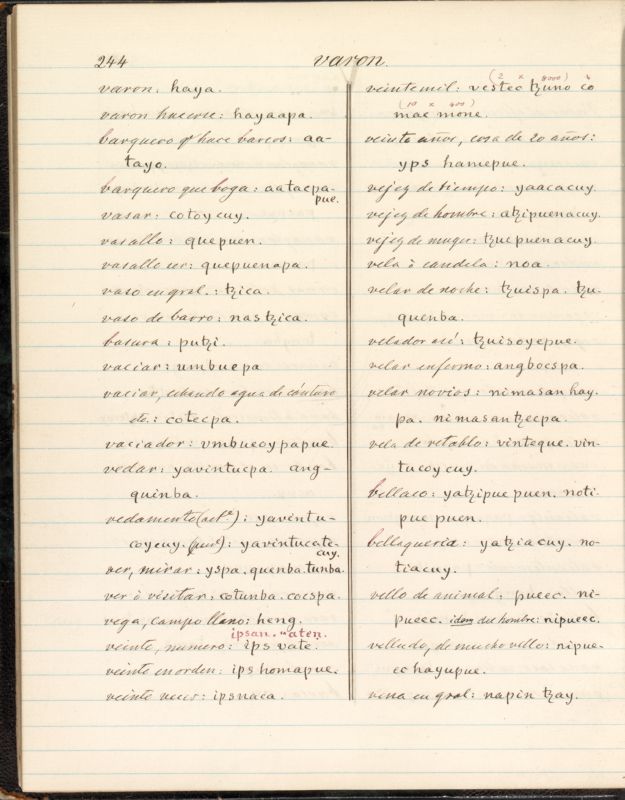 244
varon.
varon: haya.
varon hacerse: hayaapa.
barquero qe hace barcos: aa-
tayo.
barquero que boga: aatacpa-
pue.
vasar: cotoycuy.
vasallo: quepuen.
vasallo ser: quepuenapa.
vaso en gral.: tzica.
vaso de barro: nastzica.
basura: putzi.
vaciar: umbuepa
vaciar, echando agua de cántaro
etc.: cotecpa.
vaciador: vmbueoypapue.
vedar: yavintucpa. ang-
quinba.
vedamento (acte.): yavintu-
coycuy. (pas.): yavintucate-
cuy.
ver, mirar: yspa. quenba. tunba.
ver ò visitar: cotunba. cocspa.
vega, campo llano: heng.
ipsan. "aten.
veinte, numero: ips vate.
veinte en orden: ips homapue.
veinte veces: ipsnaca.
(2 x 8000) 4
veinte mil: vestec tzuno co
(10 x 400)
mac mone.
veinte años, cosa de 20 años:
yps hamepue.
vejez de tiempo: yaacacuy.
vejez de hombre: atzipuenacuy.
vejez de muger: tzucpuenacuy.
vela ò candela: noa.
velar de noche: tzuispa. tzu-
quenba.
velador asi: tzuisoyepue.
velar enfermo: angbocspa.
velar novios: nimasan hay-
pa. nimasantzecpa.
vela de retablo: vinteque. vin-
tucoycuy.
bellaco: yatzipue puen. noti-
pue puen.
bellaqueria: yatziacuy. no-
tiacuy.
vello de animal: pueec. ni-
pueec. idem del hombre: nipueec.
velludo, de mucho vello: nipue-
ec hayupue.
vena en gral: napin tzay.